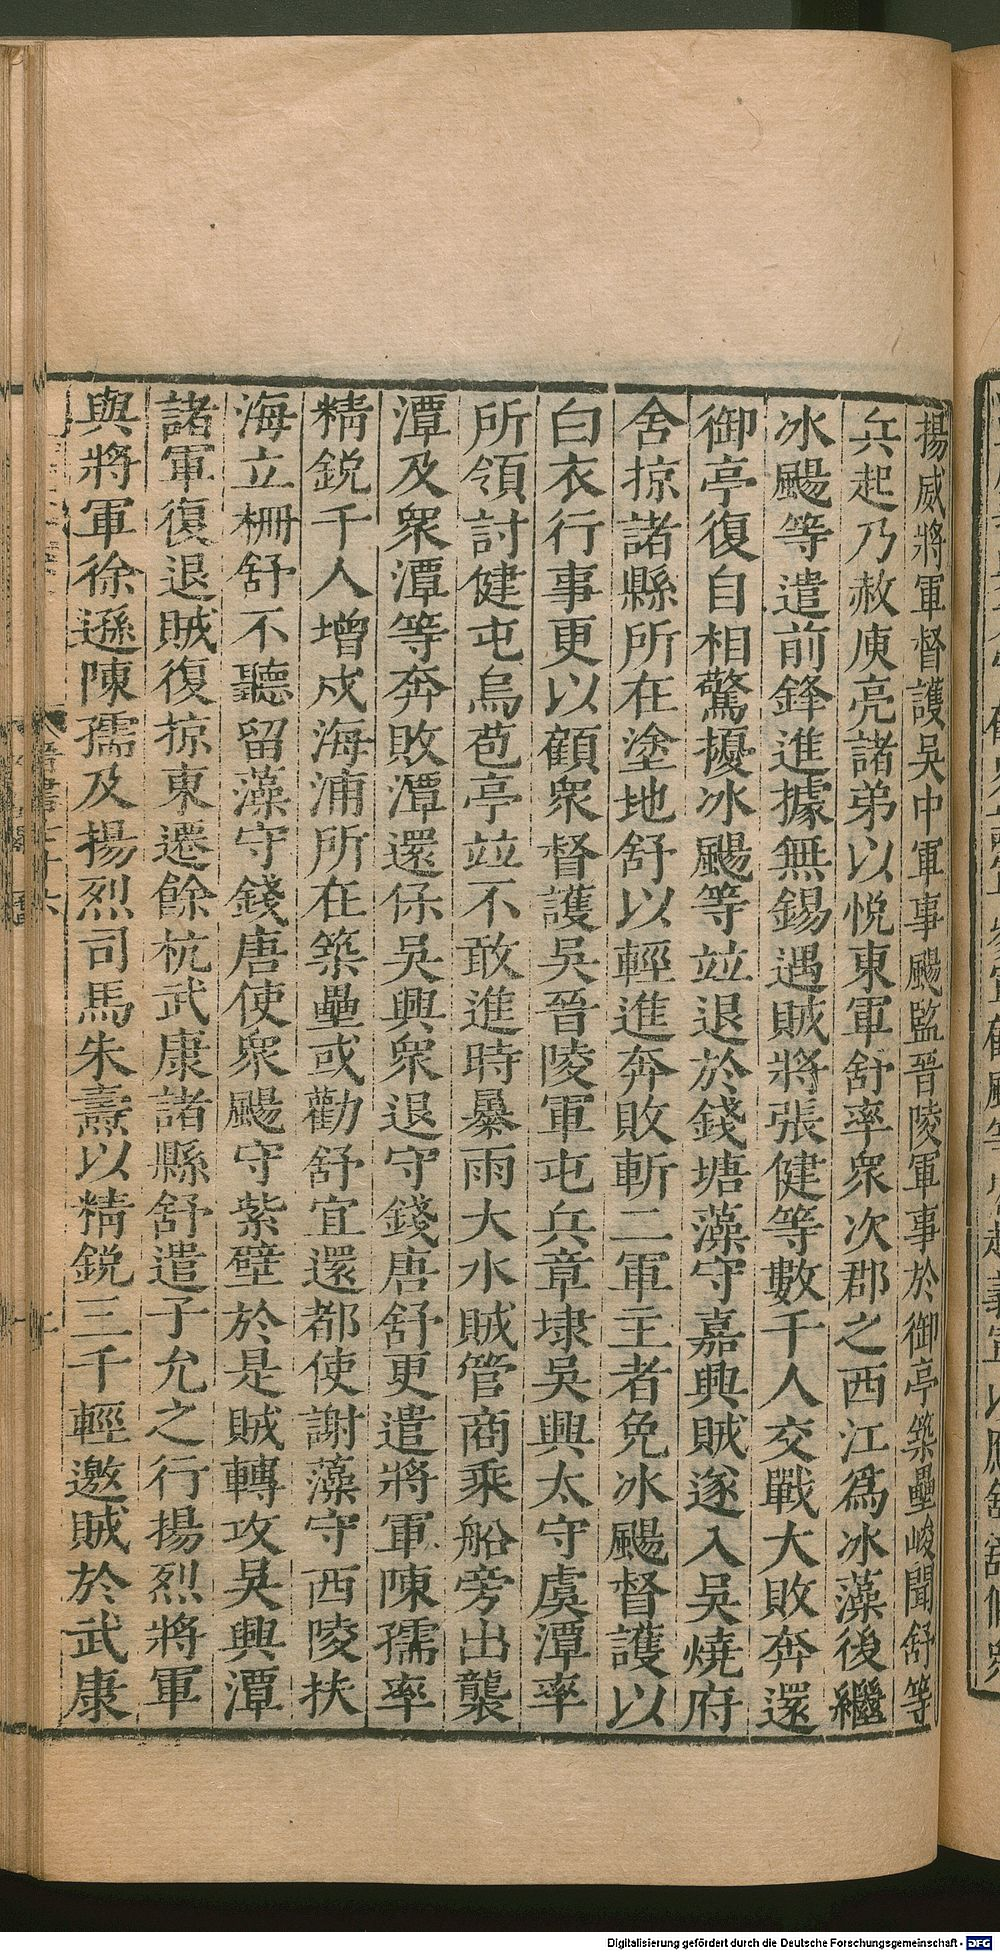 揚威將軍督護吳中軍事颺監晉陵軍事於御亭築壘峻聞舒等
兵起乃赦庾亮諸弟以悅東軍舒率衆次郡之西江爲冰藻後繼
冰颺等遣前鋒進據無錫遇賊將張健等數千人交戰大敗奔還
御亭復自相驚擾冰颺等竝退於錢塘藻守嘉興賊遂入吳燒府
舍掠諸縣所在塗地舒以輕進奔敗斬二軍主者免冰颺督護以
白衣行事更以顧衆督護吳晉陵軍屯兵章埭吳興太守虞潭率
所領討健屯烏苞亭竝不敢進時暴雨大水賊管商乘船旁出襲
潭及衆潭等奔敗潭還保吳興衆退守錢唐舒更遣將軍陳孺率
精鋭千人增戍海浦所在築壘或勸舒宜還都使謝藻守西陵扶
海立柵舒不聽留藻守錢唐使衆颺守紫壁於是賊轉攻吳興潭
諸軍復退賊復掠東遷餘杭武康諸縣舒遣子允之行揚烈將軍
與將軍徐遜陳孺及揚烈司馬朱燾以精鋭三千輕邀賊於武康
Digitalisierung gefördert durch die Deutsche Forschungsgemeinschaft - DFG